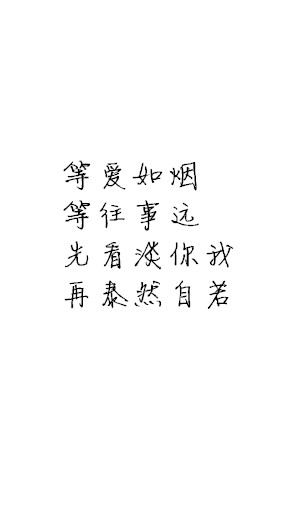 等爱如烟
等往事远
先看淡你我
再泰然自若